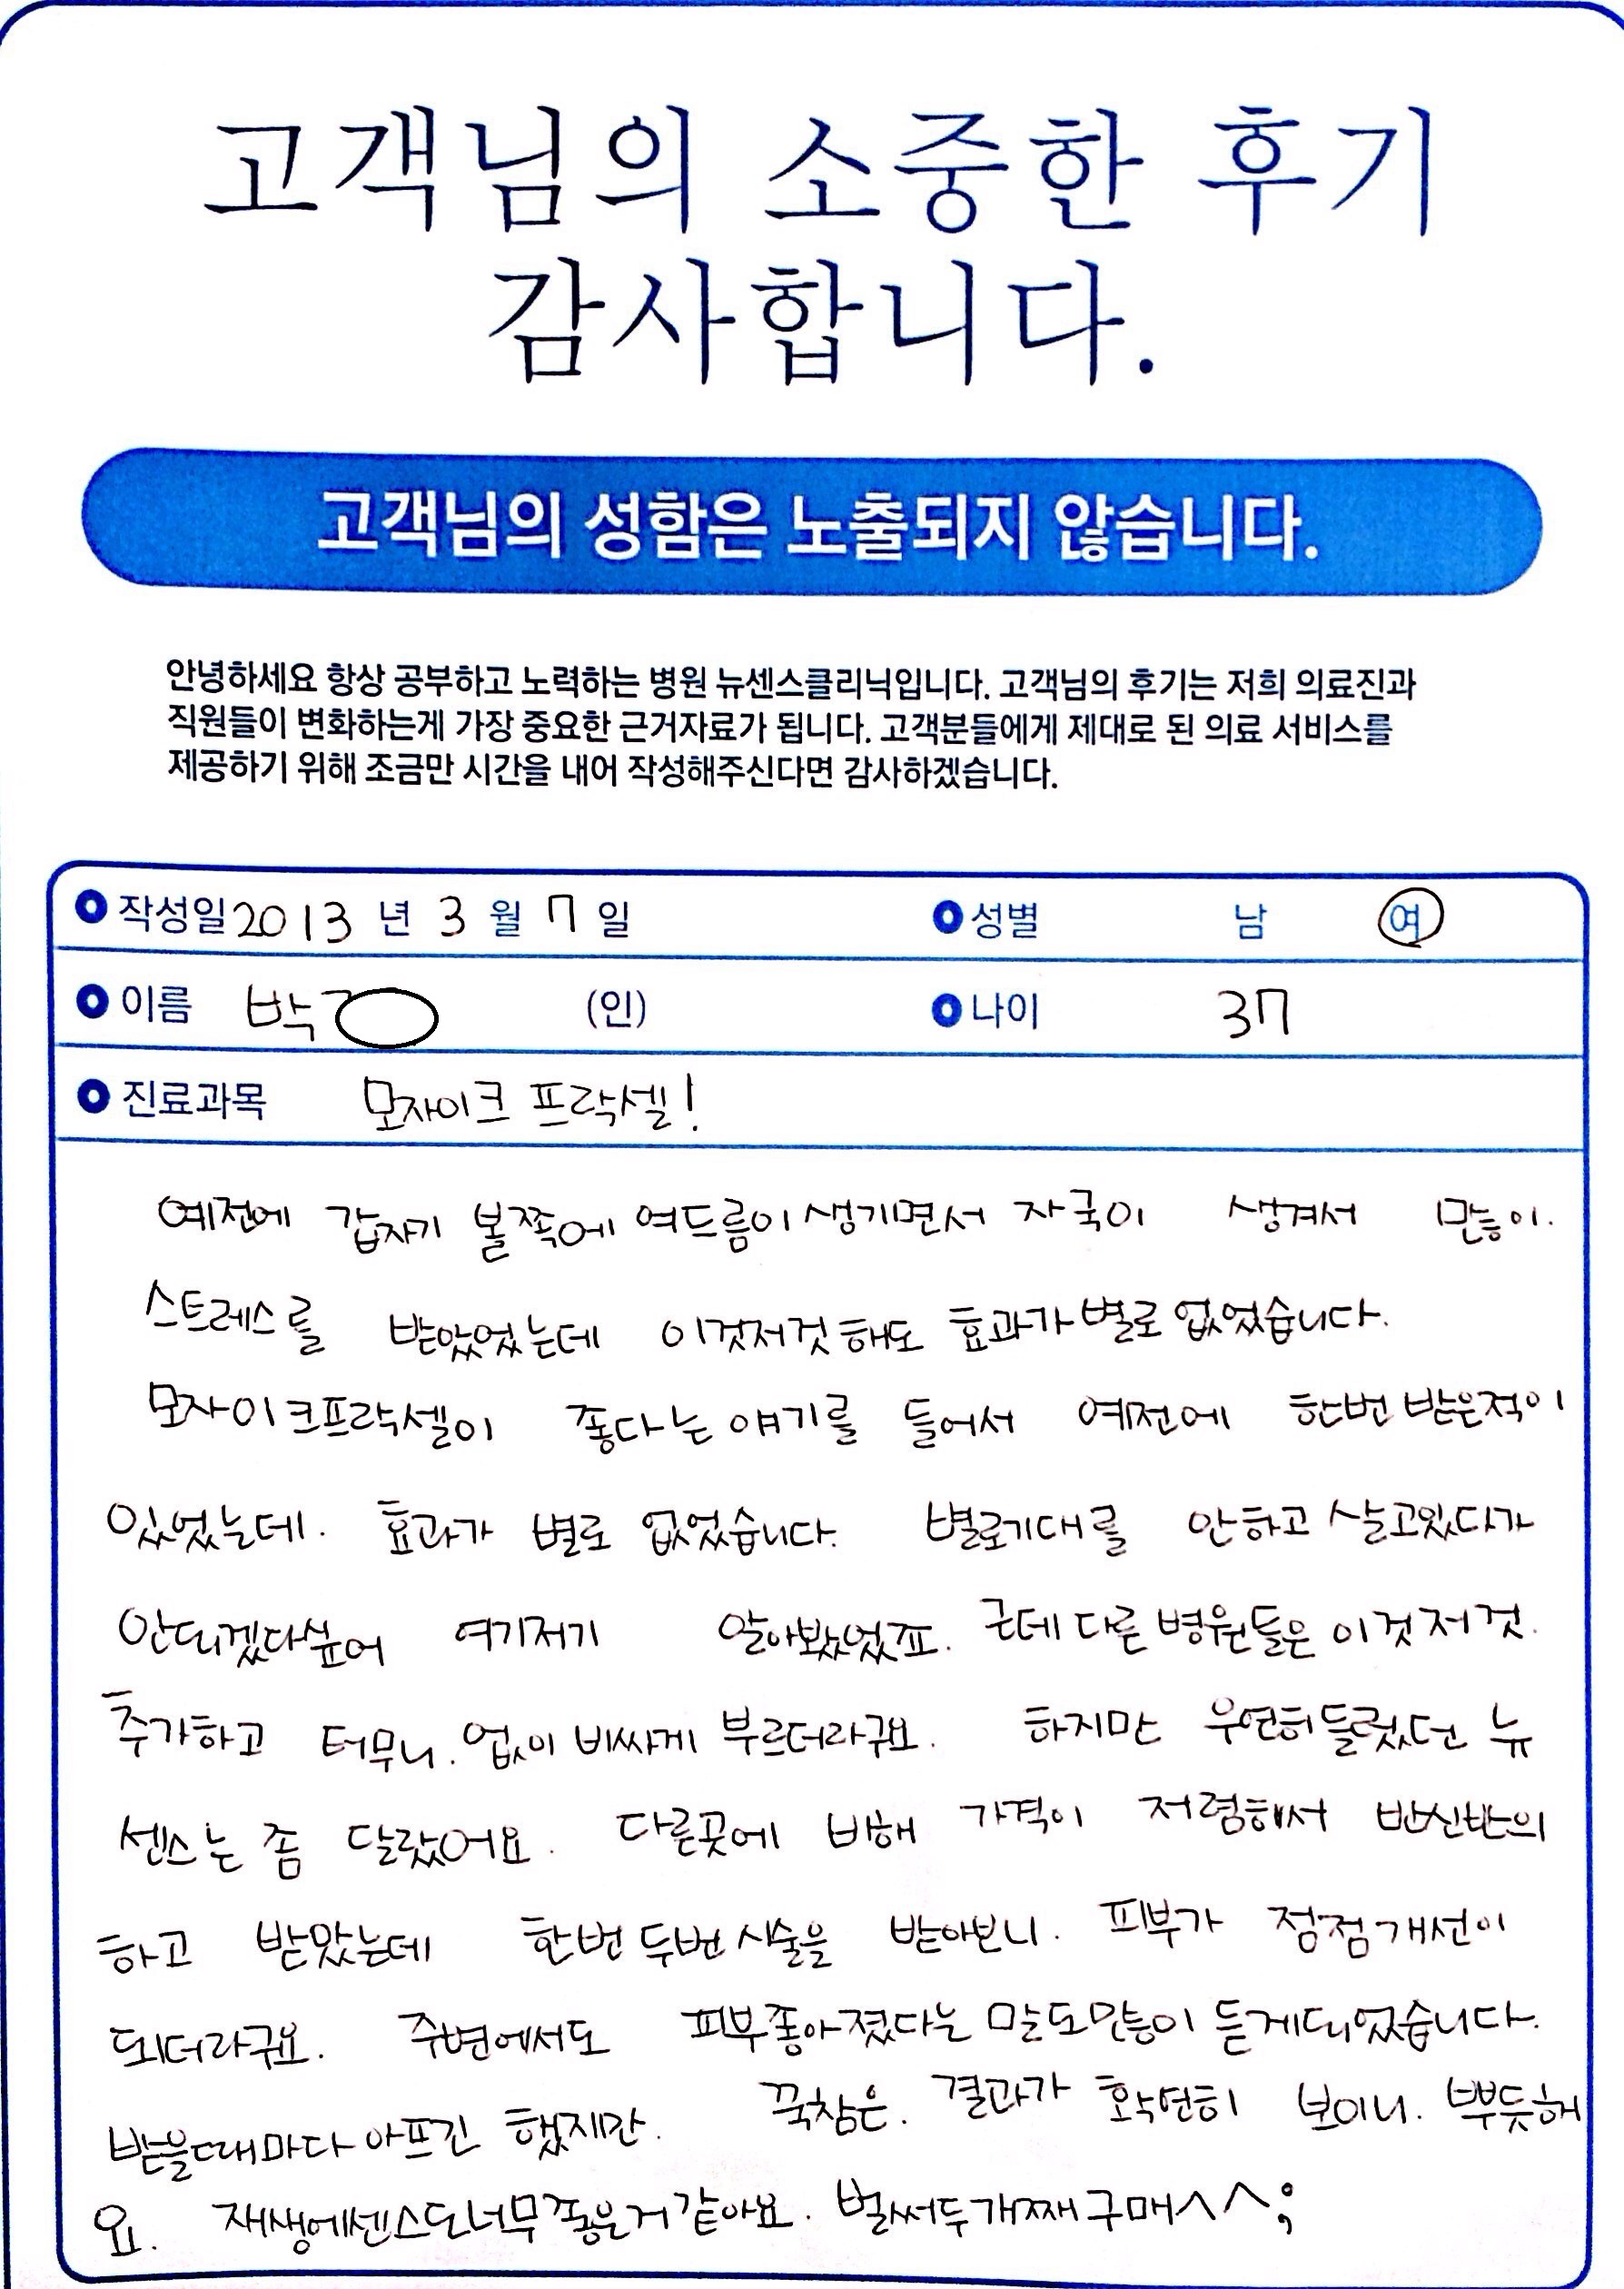 고객님의 소중한 후기
감사합니다.
고객님의 성함은 노출되지 않습니다.
안녕하세요 항상 공부하고 노력하는 병원 뉴센스클리닉입니다. 고객님의 후기는 저희 의료진과
직원들이 변화하는게 가장 중요한 근거자료가 됩니다. 고객분들에게 제대로 된 의료 서비스를
제공하기 위해 조금만 시간을 내어 작성해주신다면 감사하겠습니다.
작성일 2013 년 3 월 7 일 성별 남 여
이름 박 (인) 나이 37
진료과목 모자이크 프락셀!
예전에 갑자기 볼쪽에 여드름이 생기면서 자국이 생겨서 많이.
스트레스를 받았었는데 이것저것 해도 효과가 별로 없었습니다.
모자이크프락셀이 좋다는 얘기를 들어서 예전에 한번 받은적이
있었는데. 효과가 별로 없었습니다. 별로기대를 안하고 살고있다가
안되겠다싶어 여기저기 알아봤었죠. 근데 다른 병원들은 이것저것.
추가하고 터무니.없이 비싸게 부르더라구요. 하지만 우연히들렀던 뉴
센스는 좀 달랐어요. 다른곳에 비해 가격이 저렴해서 반신반의
하고 받았는데 한번 두번 시술을 받아보니. 피부가 점점개선이
되더라구요. 주변에서도 피부좋아졌다는 말도많이 듣게되었습니다.
받을때마다 아프긴 했지만. 꾹참은. 결과가 확연히 보이니. 뿌듯해
요. 재생에센스도너무좋은거같아요. 벌써두개째구매^^;